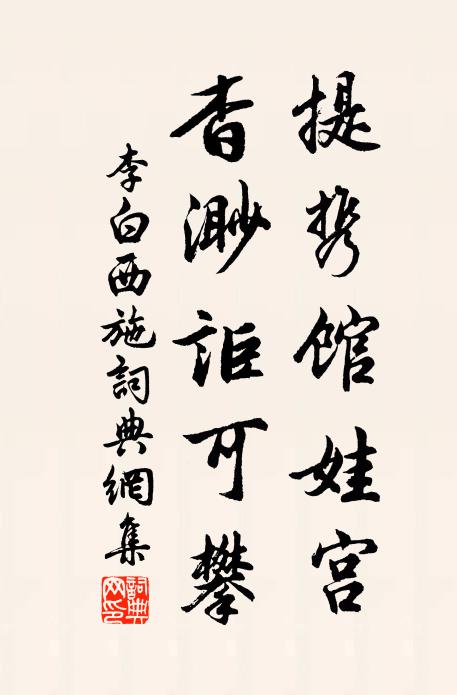 提携館娃宮
杳渺詎可攀
李白西施詞典網集
詞典網印